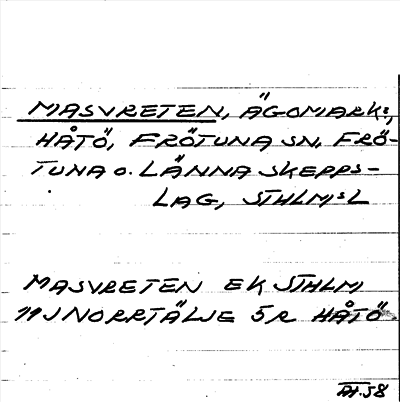 MASVRETEN, ÄGOMARK:,
HÅTÖ, FRÖTUNA SN, FRÖ-
TUNA O. LÄNNA SKEPPS-
LAG, STHLM:S L
MASVRETEN EK STHLM
11J NORRTÄLJE 5R HÅTÖ.
58